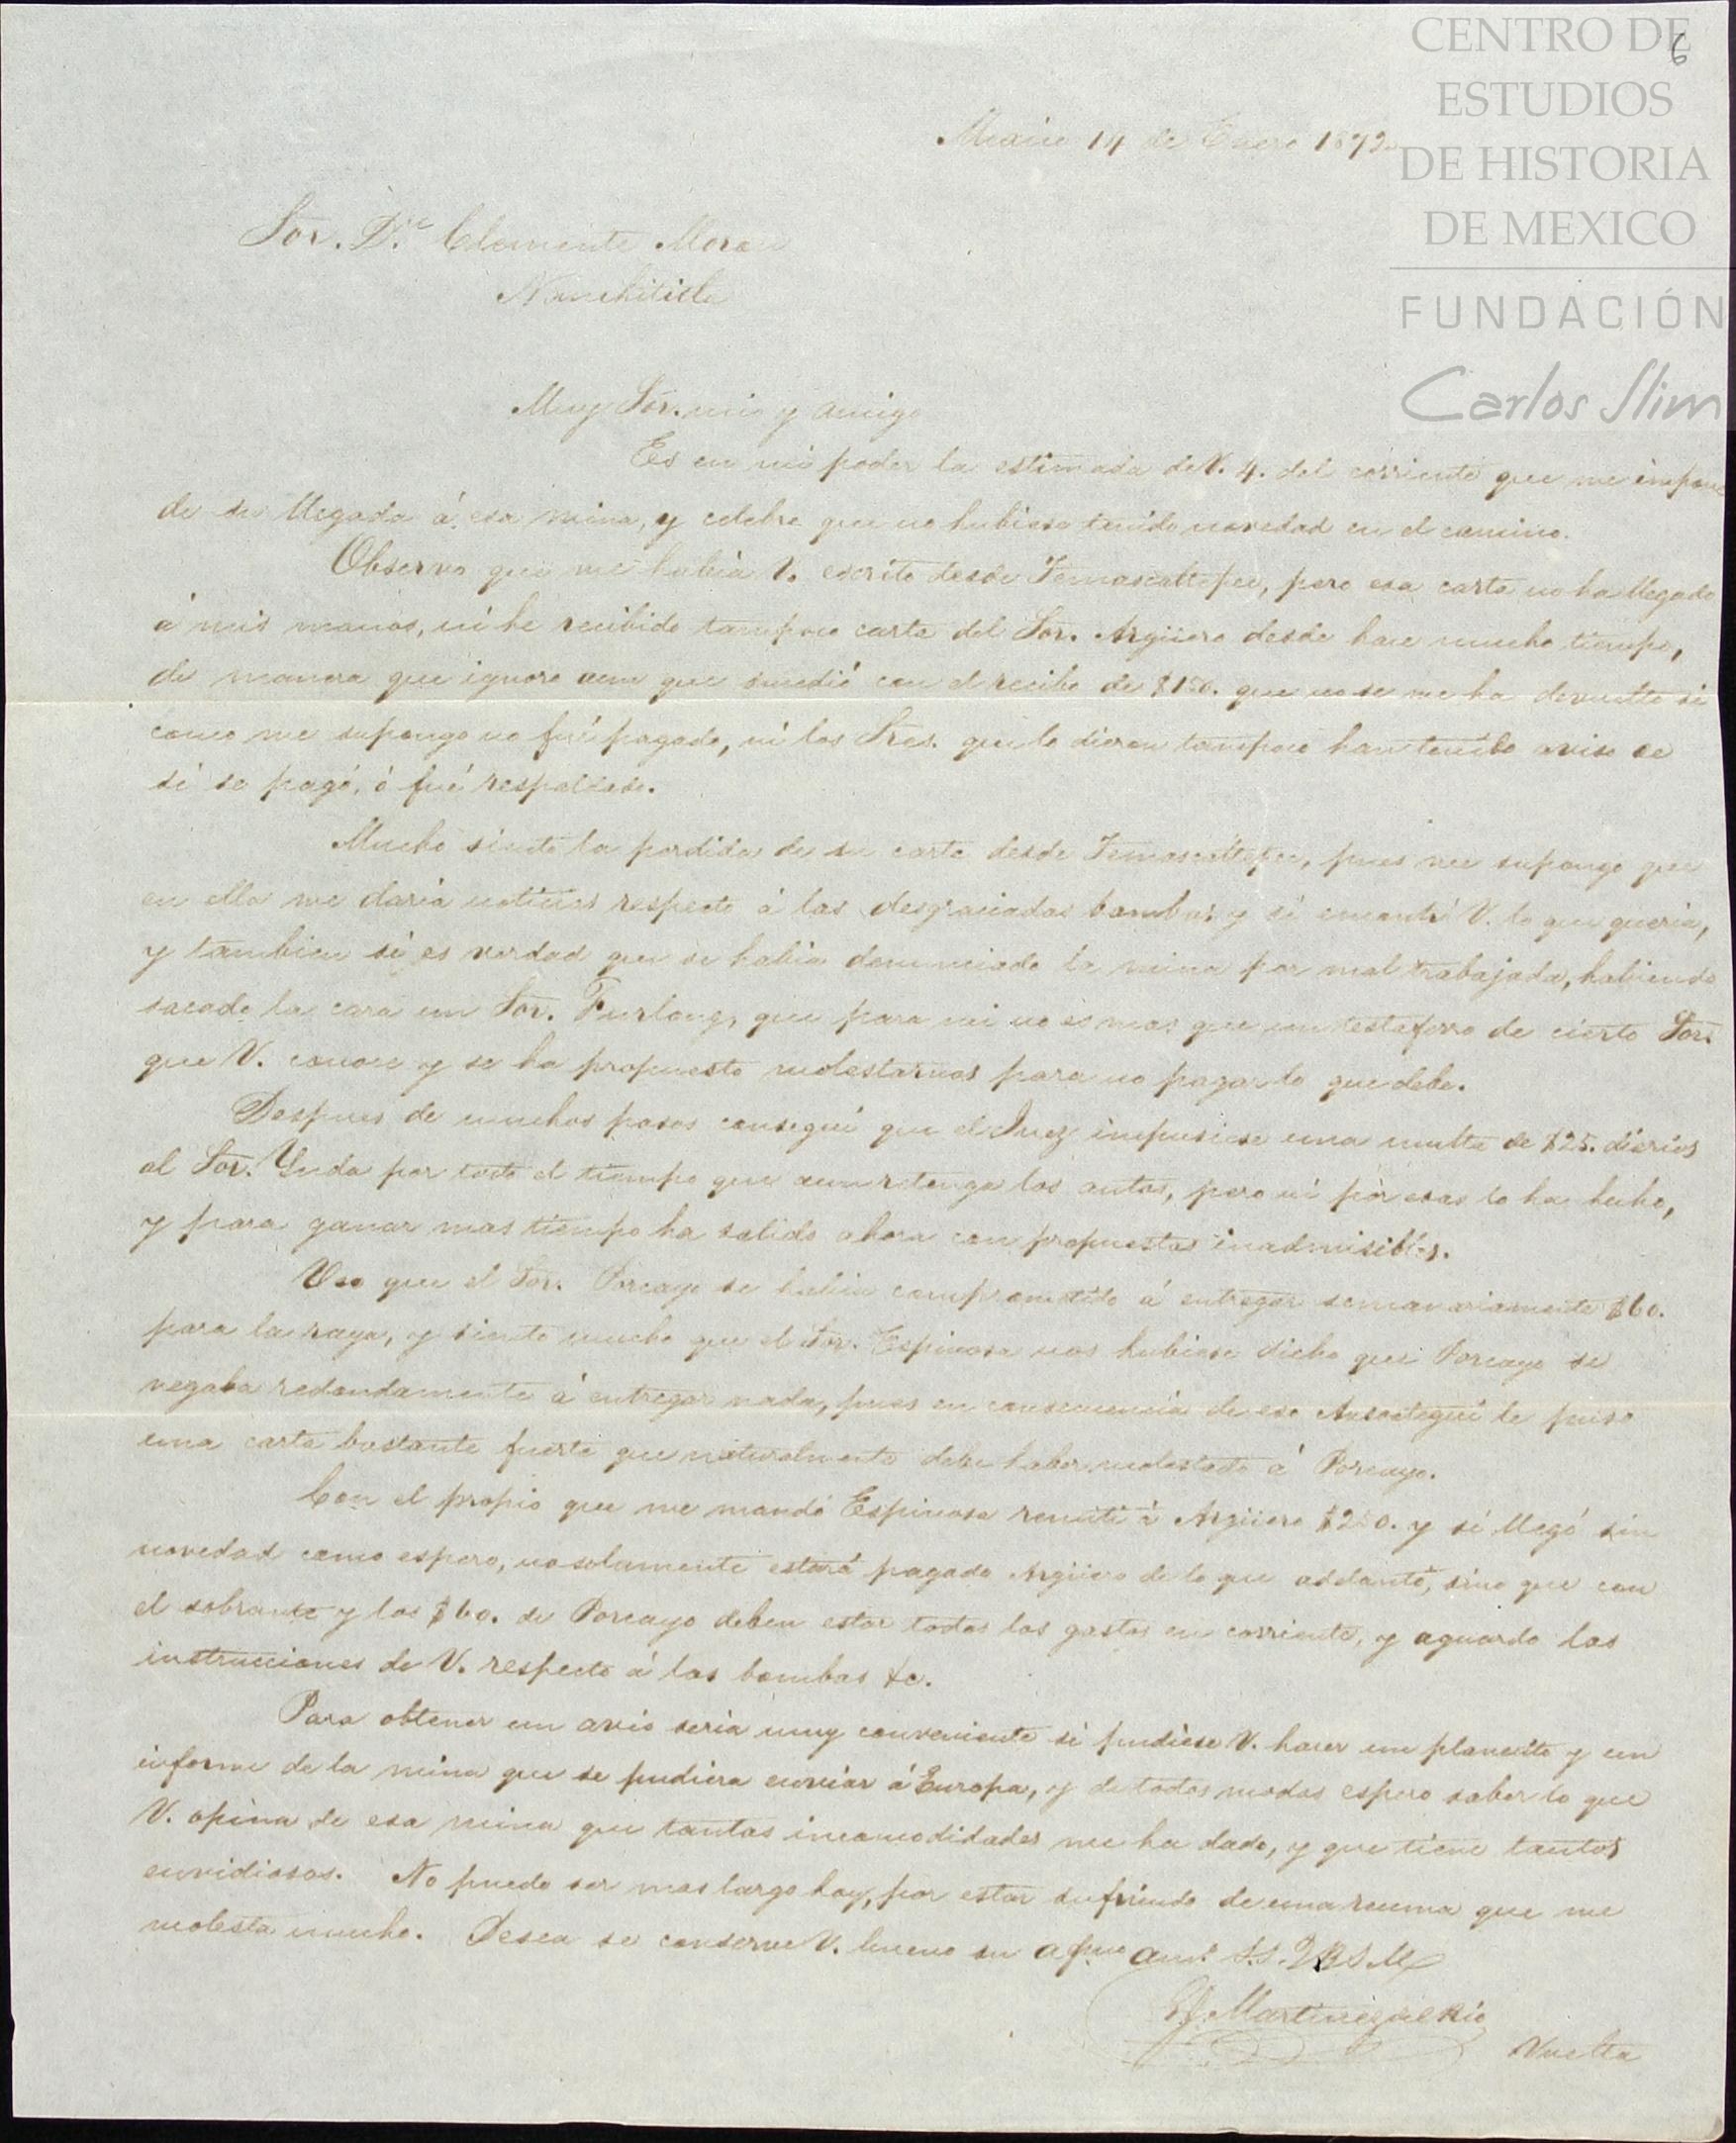 6
CENTRO DE
ESTUDIOS
DE HISTORIA
DE MEXICO
FUNDACIÓN
Carlos Slim
Mexico 14 de Enero 1872
Sor. Dn. Clemente Moron
Nanchititla
Muy Sor. mio y amigo
Es en mi poder la estimada de V. 4. del corriente que me impone
de su llegada á esa mina, y celebro que no hubiese tenido novedad en el camino.
Observo que me habia V. escrito desde Temascaltepec, pero esa carta no ha llegado
á mis manos, ni he recibido tampoco carta del Sor. Argüero desde hace mucho tiempo,
de manera que ignoro aun que sucedió con el recibo de que no se me ha devuelto si
como me supongo no fué pagado, ni los Sres. que lo dieron tampoco han tenido aviso de
si se pagó, ó fué respaldado.
Mucho siento la perdida de su carta desde Temascaltepec, pues me supongo que
en ella me daria noticias respecto á las desgraciadas bombas y si encontró V. lo que queria,
y tambien si es verdad que se habia denunciado la mina por mal trabajada, habiendo
sacado la cara un Sor. Furlong, que para mi no es mas que un testaferro de cierto Sor.
que V. conoce y se ha propuesto molestarnos para no pagar lo que debe.
Despues de muchos pasos conseguí que el Juez impusiese una multa de $25. diarios
al Sor. por todo el tiempo que aun retenga los autos, pero ni por esas lo ha hecho,
y para ganar mas tiempo ha salido ahora con propuestas inadmisibles.
Veo que el Sor. Porcayo se habia comprometido á entregar semanariamente $60.
para la raya, y siento mucho que el Sor. Espinosa nos hubiese dicho que Porcayo se
negaba redondamente á entregar nada, pues en consecuencia de eso Ansoategui le puso
una carta bastante fuerte que naturalmente debe haber molestado á Porcayo.
Con el propio que me mandó Espinosa remití á Argüero y si llegó sin
novedad como espero, no solamente estará pagado Argüero de lo que adelantó, sino que con
el sobrante y los $60. de Porcayo deben estar todos los gastos en corriente, y aguardo las
instrucciones de V. respecto á las bombas &c.
Para obtener un avio seria muy conveniente si pudiese V. hacer un planesito y un
informe de la mina que se pudiera enviar á Europa, y de todos modos espero saber lo que
V. opina de esa mina que tantas incomodidades me ha dado, y que tiene tantos
envidiosos. No puedo ser mas largo hoy, por estar sufriendo de una reuma que me
molesta mucho. Desea se conserve V. bueno su afmo am.º S.S.Q.B.S.M.
Martinez del Rio
Vuelta